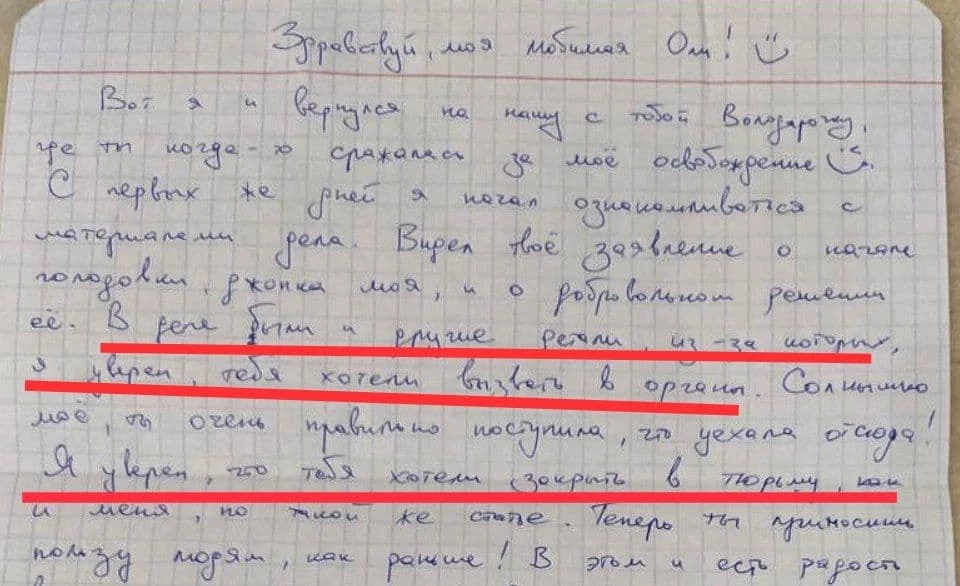 Здравствуй, моя любимая Оля! :)
Вот я и вернулся на нашу с тобой Володарочку,
где ты когда-то сражалась за моё освобождение
С первых же дней я начал ознакамливаться с
материалами дела. Видел твоё заявление о начале
голодовки, джонка моя, и о добровольном решении
её. В деле были и другие детали, из-за которых,
я уверен, тебя хотели вызвать в органы. Солнышко
моё, ты очень правильно поступила, что уехала отсюда!
Я уверен, что тебя хотели закрыть в тюрьму, как
и меня, по такой же статье. Теперь ты приносишь
пользу людям, как раньше! В этом и есть радость